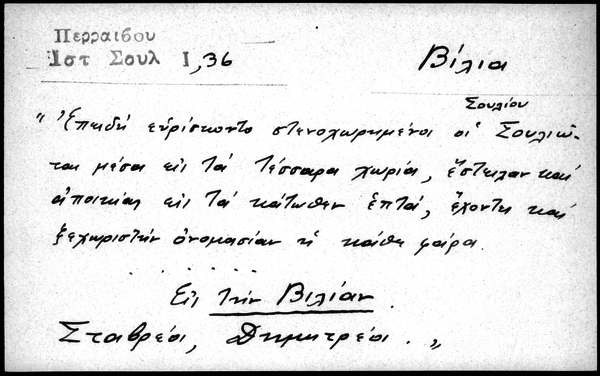 Περραιβου
Ιστ Σουλ Ι, 36
Βίλια
Σουλίου
"Ἐπειδή εὑρίσκοντο στενοχωρημένοι οἱ Σουλιῶ-
ται μέσα εἰς τά τέσσαρα χωρία, ἔστειλαν καί
ἀποικίας εἰς τά κάτωθεν ἑπτά, ἔχοντες καί
ξεχωριστήν ὀνομασίαν ἡ κάθε φάρα.
. . . . . .
Εἰς τήν Βιλίαν.
Σταβρέοι, Δημητρέοι. „